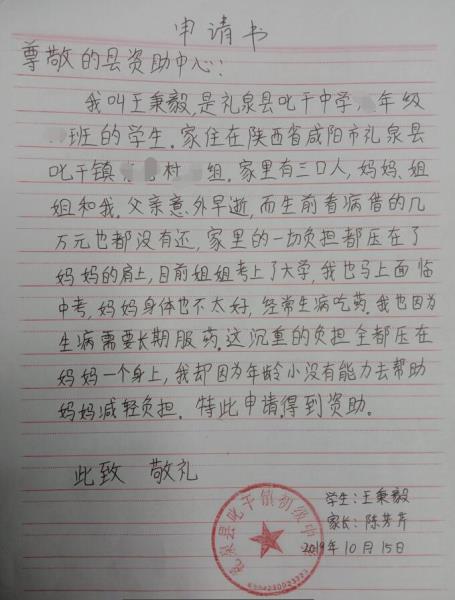 申请书
尊敬的县资助中心：
我叫王秉毅，是礼泉县叱干中学，年级
班的学生。家住在陕西省咸阳市礼泉县
叱干镇村组。家里有三口人，妈妈、姐
姐和我。父亲意外早逝，而生前看病借的几
万元也都没有还，家里的一切负担都压在了
妈妈的肩上，目前姐姐考上了大学，我也马上面临
中考，妈妈身体也不太好，经常生病吃药。我也因为
生病需要长期服药。这沉重的负担全都压在
妈妈一个身上，我却因为年龄小没有能力去帮助
妈妈减轻负担。特此申请得到资助。
此致 敬礼
学生：王秉毅
家长：陈芳芹
2019年10月15日
礼泉县叱干镇初级中学